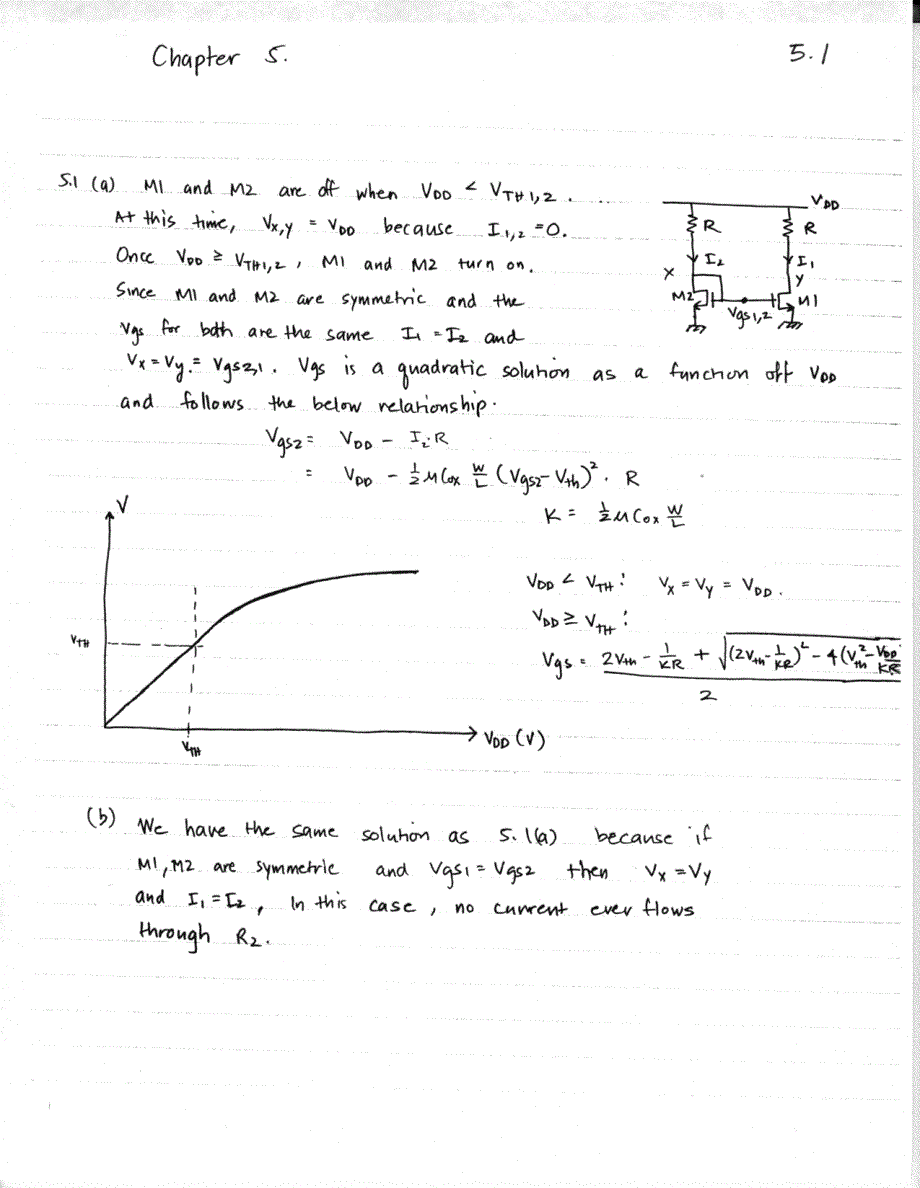 Chapter 5.
5.1
5.1 (a) M1 and M2 are off when VDD < VTH1,2.
At this time, Vx,y = VDD because I1,2 = 0.
Once VDD ≥ VTH1,2, M1 and M2 turn on.
Since M1 and M2 are symmetric and the
Vgs for both are the same I1 = I2 and
Vx = Vy = Vgs2,1. Vgs is a quadratic solution as a function off VDD
and follows the below relationship.
VDD
R R
I2 I1
X Y
M2 M1
Vgs1,2
Vgs2 = VDD - I2·R
= VDD - ½ μCox W/L (Vgs2 - Vth)². R
K = ½ μCox W/L
V
VTH
VTH
VDD (V)
VDD < VTH: Vx = Vy = VDD.
VDD ≥ VTH:
Vgs = 2Vth - 1/KR + √(2Vth - 1/KR)² - 4(Vth² - VDD/KR
2
(b) We have the same solution as 5.1(a) because if
M1, M2 are symmetric and Vgs1 = Vgs2 then Vx = Vy
and I1 = I2, In this case, no current ever flows
through R2.